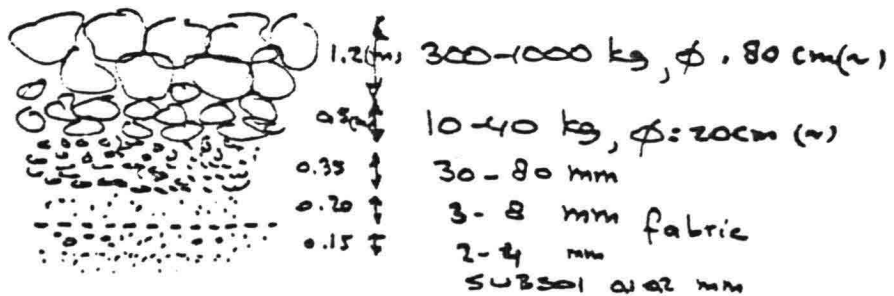 1.2(m) 300-1000 kg, φ . 80 cm(~)
0.5(m) 10-40 kg, φ = 20cm (~)
0.35 30-80 mm
0.20 3-8 mm fabric
0.15 2-4 mm
mm